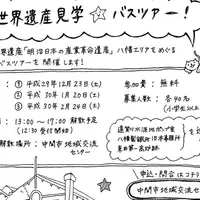 世界遺産見学
バスツアー！
世界遺産「明治日本の産業革命遺産」八幡エリアをめぐる
バスツアーを開催します！
① 平成29年12月23日(土)
② 平成30年1月20日(土)
③ 平成30年2月24日(土)
参加費：無料
募集人数：各40名
(小学生以上
：13:00〜17:00 解散予定
(12:30 受付開始)
解散場所：中間市 地域交流
センター
遠賀川水源地ポンプ室
八幡製鐵所 旧本事務所
東田第一高炉跡
申込・問合は
中間市地域交流セ